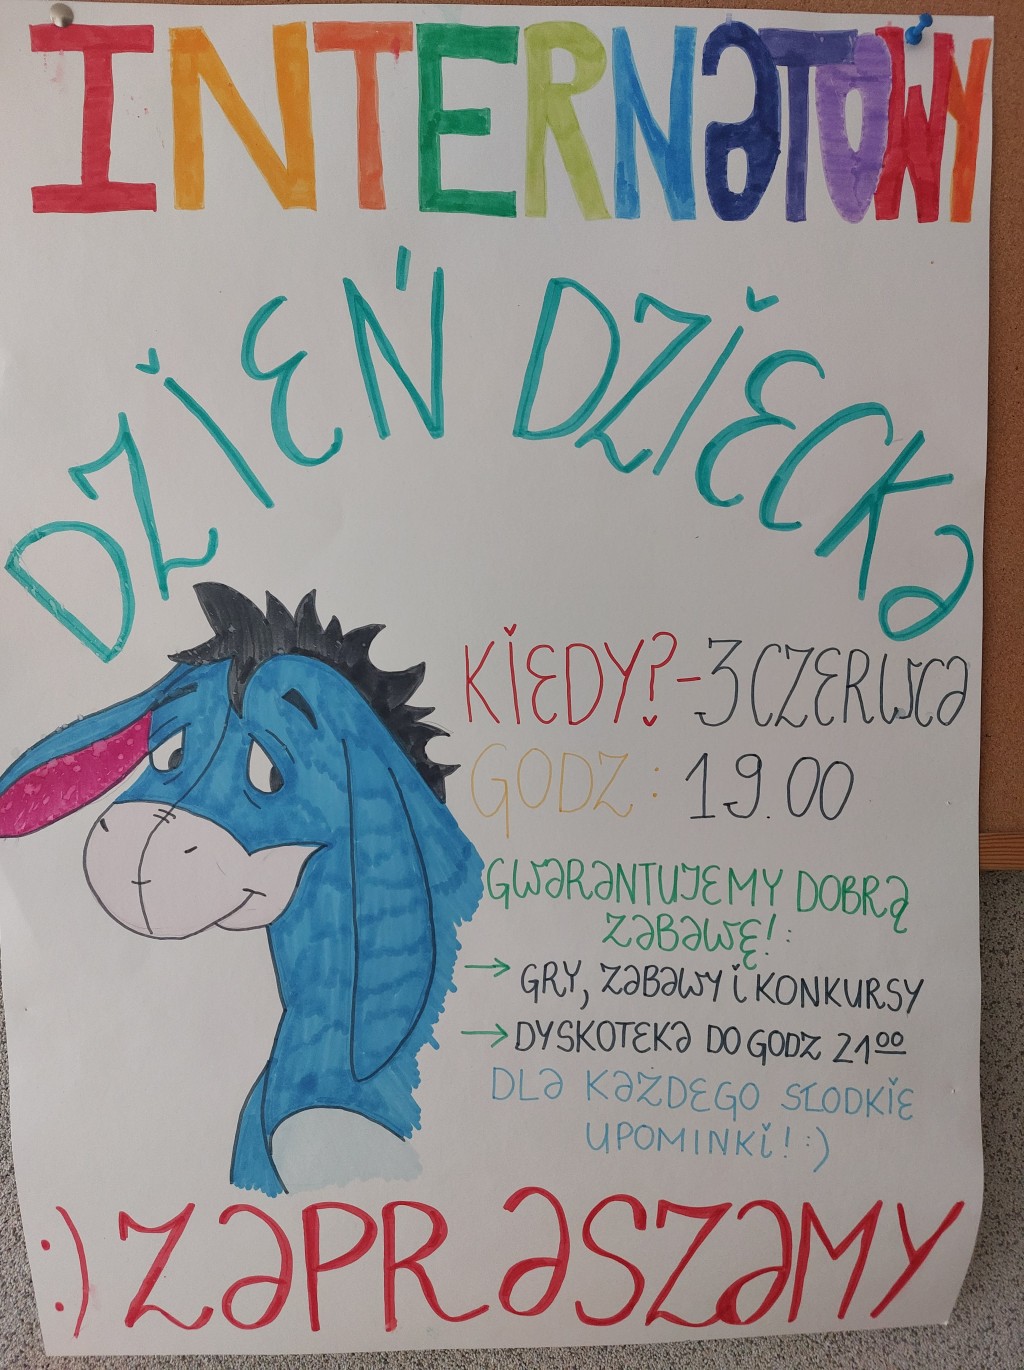 INTERNATOWY
DZIEŃ DZIECKA
KIEDY? - 3 CZERWCA
GODZ: 19.00
GWARANTUJEMY DOBRĄ
ZABAWĘ!:
→ GRY, ZABAWY i KONKURSY
→ DYSKOTEKA DO GODZ 21⁰⁰
DLA KAŻDEGO SŁODKIE
UPOMINKi! :)
:) ZAPRASZAMY